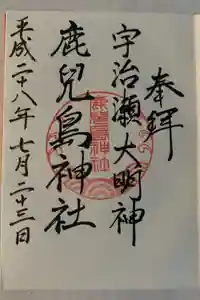 奉拝
宇治瀬大明神
鹿児島神社
平成二十八年七月二十三日